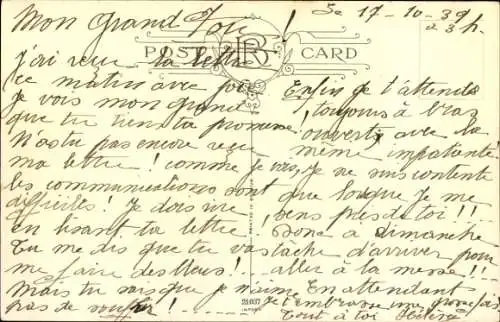 Mon Grand Fou !
Le 17-10-39
à 3h.
POST CARD
J'ai reçu ta lettre
ce matin avec joie
je vois mon grand
que tu tiens ta promesse
N'as tu pas encore reçu
ma lettre ! comme je vois
les communications sont
difficiles ! Je dois rire
en lisant ta lettre
Tu me dis que tu vas
me faire des bleus !
Mais tu sais que je n'aime
pas de souffrir !
Enfin je t'attends
toujours à bras
ouverts avec la
même impatiente
Je ne suis contente
que lorsque je me
sens près de toi !!
Donc à dimanche
tâche d'arriver pour
aller à la messe !!
En attendant
je t'embrasse une fois
Tout à toi Hélène
21037